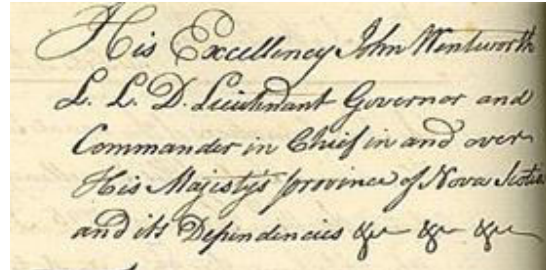 His Excellency John Wentworth
L. L. D. Lieutenant Governor and
Commander in Chief in and over
His Majestys province of Nova Scotia
and its Dependencies &c &c &c